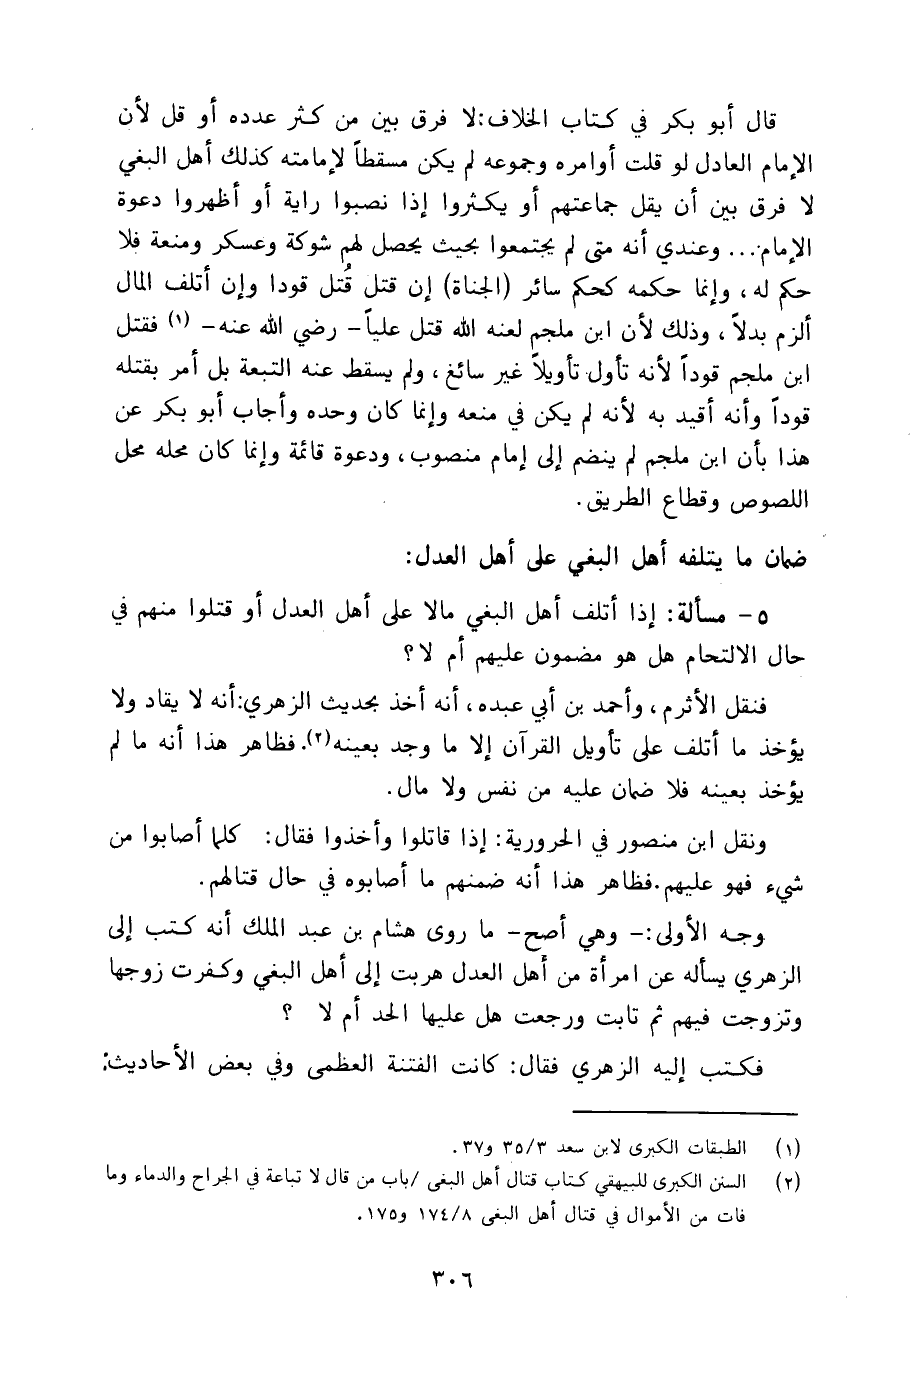 قال أبو بكر في كتاب الخلاف:لا فرق بين من كثر عدده أو قل لأن
الإمام العادل لو قلت أوامره وجموعه لم يكن مسقطاً لإمامته كذلك أهل البغي
لا فرق بين أن يقل جماعتهم أو يكثروا إذا نصبوا راية أو أظهروا دعوة
الإمام... وعندي أنه متى لم يجتمعوا بحيث يحصل لهم شوكة وعسكر ومنعة فلا
حكم له، وإنما حكمه كحكم سائر (الجناة) إن قتل قُتل قودا وإن أتلف المال
ألزم بدلاً، وذلك لأن ابن ملجم لعنه الله قتل علياً- رضي الله عنه- (١) فقتل
ابن ملجم قوداً لأنه تأول تأويلاً غير سائغ، ولم يسقط عنه التبعة بل أمر بقتله
قوداً وأنه أقيد به لأنه لم يكن في منعه وإنما كان وحده وأجاب أبو بكر عن
هذا بأن ابن ملجم لم ينضم إلى إمام منصوب، ودعوة قائمة وإنما كان محله محل
اللصوص وقطاع الطريق.
ضمان ما يتلفه أهل البغي على أهل العدل:
٥- مسألة: إذا أتلف أهل البغي مالا على أهل العدل أو قتلوا منهم في
حال الالتحام هل هو مضمون عليهم أم لا؟
فنقل الأثرم، وأحمد بن أبي عبده، أنه أخذ بحديث الزهري:أنه لا يقاد ولا
يؤخذ ما أتلف على تأويل القرآن إلا ما وجد بعينه(٢).فظاهر هذا أنه ما لم
يؤخذ بعينه فلا ضمان عليه من نفس ولا مال.
ونقل ابن منصور في الحرورية: إذا قاتلوا وأخذوا فقال: كلما أصابوا من
شيء فهو عليهم.فظاهر هذا أنه ضمنهم ما أصابوه في حال قتالهم.
وجه الأولى:- وهي أصح- ما روى هشام بن عبد الملك أنه كتب إلى
الزهري يسأله عن امرأة من أهل العدل هربت إلى أهل البغي وكفرت زوجها
وتزوجت فيهم ثم تابت ورجعت هل عليها الحد أم لا ؟
فكتب إليه الزهري فقال: كانت الفتنة العظمى وفي بعض الأحاديث:
(١) الطبقات الكبرى لابن سعد ٣٥/٣ و٣٧.
(٢) السنن الكبرى للبيهقي كتاب قتال أهل البغى /باب من قال لا تباعة في الجراح والدماء وما
فات من الأموال في قتال أهل البغى ١٧٤/٨ و١٧٥.
٣٠٦